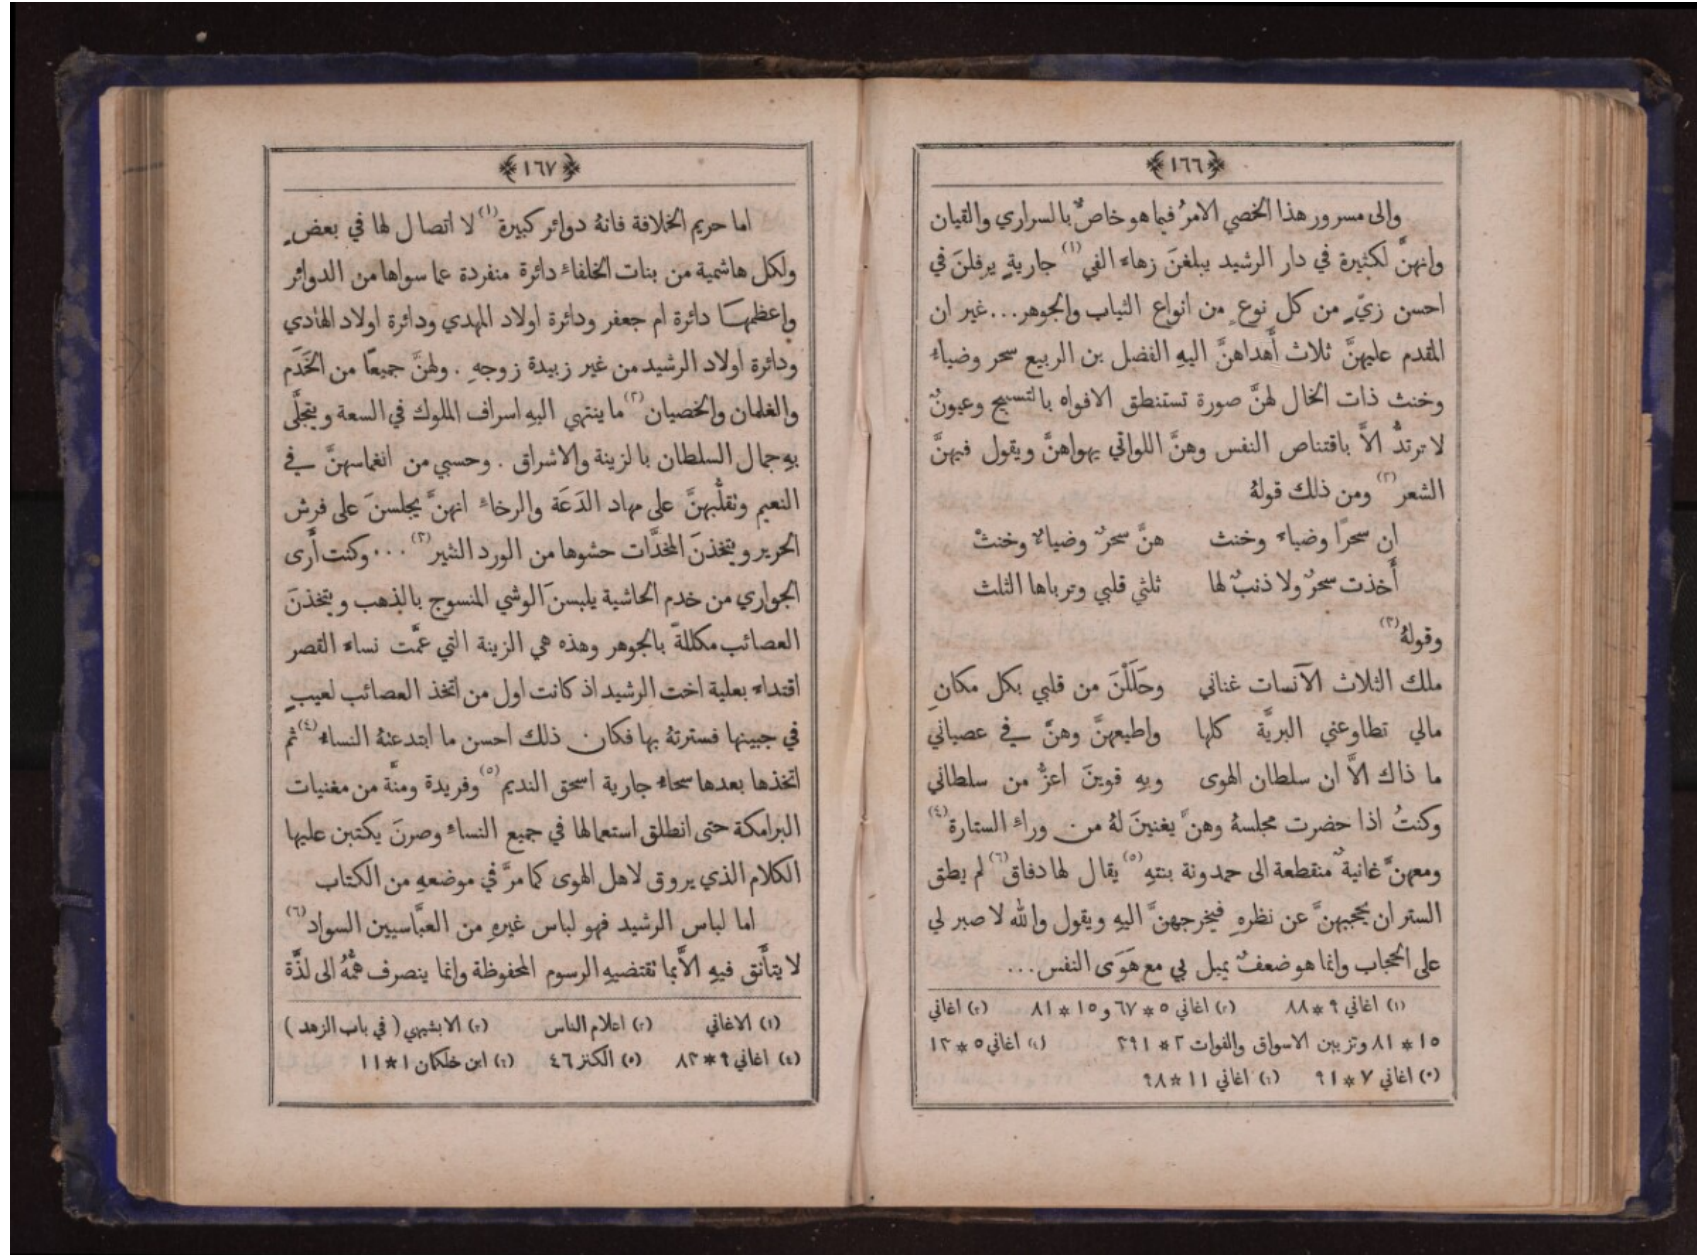 ﴿١٦٦﴾
والى مسرور هذا الخصي الامرُ فيما هو خاصٌ بالسراري والقيان
وانهنَّ لكثيرة في دار الرشيد يبلغنَ زهاءَ الفي (١) جاريةٍ يرفلنَ في
احسن زيٍّ من كل نوعٍ من انواع الثياب والجوهر... غير ان
المقدم عليهنَّ ثلاث أَهداهنَّ اليهِ الفضل بن الربيع سحر وضياءُ
وخنث ذات الخال لهنَّ صورة تستنطق الافواه بالتسبيح وعيونٌ
لا ترتدُّ الاَّ باقتناص النفس وهنَّ اللواتي يهواهنَّ ويقول فيهنَّ
الشعر (٢) ومن ذلك قولهُ
ان سحرًا وضياءَ وخنث هنَّ سحرٌ وضياءٌ وخنثْ
أَخذت سحرٌ ولا ذنبٌ لها ثلثي قلبي وترباها الثلث
وقولهُ (٣)
ملك الثلاث الآنسات عناني وحَلَلْنَ من قلبي بكل مكانِ
مالي تطاوعني البريَّة كلها واطيعهنَّ وهنَّ في عصياني
ما ذاك الاَّ ان سلطان الهوى وبهِ قوينَ اعزُّ من سلطاني
وكنتُ اذا حضرت مجلسهُ وهنَّ يغنينَ لهُ من وراءِ الستارة (٤)
ومعهنَّ غانيةٌ منقطعة الى حمدونة بنتهِ (٥) يقال لها دفاق (٦) لم يطق
الستر ان يحجبهنَّ عن نظرهِ فيخرجهنَّ اليهِ ويقول والله لا صبر لي
على الحجاب وانما هو ضعفٌ يميل بي مع هَوَى النفس...
(١) اغاني ٩*٨٨ (٢) اغاني ٥*٦٧ و ١٥*٨١ (٣) اغاني
١٥*٨١ وتزيين الاسواق والفوات ٢*٢٩١ (٤) اغاني ٥*١٢
(٥) اغاني ٧*٩١ (٦) اغاني ١١*٩٨
﴿١٦٧﴾
اما حريم الخلافة فانهُ دوائر كبيرة (١) لا اتصال لها في بعضٍ
ولكل هاشمية من بنات الخلفاءِ دائرة منفردة عما سواها من الدوائر
واعظمها دائرة ام جعفر ودائرة اولاد المهدي ودائرة اولاد الهادي
ودائرة اولاد الرشيد من غير زبيدة زوجهِ . ولهنَّ جميعًا من الخَدَم
والغلمان والخصيان (٢) ما ينتهي اليهِ اسراف الملوك في السعة ويتجلَّى
بهِ جمال السلطان بالزينة والاشراق . وحسبي من انغماسهنَّ في
النعيم وتقلُّبهنَّ على مهاد الدَعَة والرخاءِ انهنَّ يجلسنَ على فرش
الحرير ويتخذنَ المخدَّات حشوها من الورد النثير (٣) ... وكنت أَرى
الجواري من خدم الحاشية يلبسنَ الوشي المنسوج بالذهب ويتخذنَ
العصائب مكللةً بالجوهر وهذه هي الزينة التي عمَّت نساءَ القصر
اقتداءً بعلية اخت الرشيد اذ كانت اول من اتخذ العصائب لعيبٍ
في جبينها فسترتهُ بها فكان ذلك احسن ما ابتدعتهُ النساءُ (٤) ثم
اتخذها بعدها سحاءُ جارية اسحق النديم (٥) وفريدة ومنَّة من مغنيات
البرامكة حتى انطلق استعمالها في جميع النساءِ وصرنَ يكتبن عليها
الكلام الذي يروق لاهل الهوى كما مرَّ في موضعهِ من الكتاب
اما لباس الرشيد فهو لباس غيرهِ من العبَّاسيين السواد (٦)
لا يتأَنق فيهِ الاَّ بما تقتضيهِ الرسوم المحفوظة وانما ينصرف همُّهُ الى لذَّة
(١) الاغاني (٢) اعلام الناس (٣) الابشيهي ( في باب الزهد )
(٤) اغاني ٩*٨٣ (٥) الكنز ٤٦ (٦) ابن خلكان ١*١١